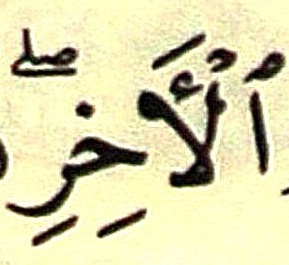 ٱلۡأَخِرِۖ